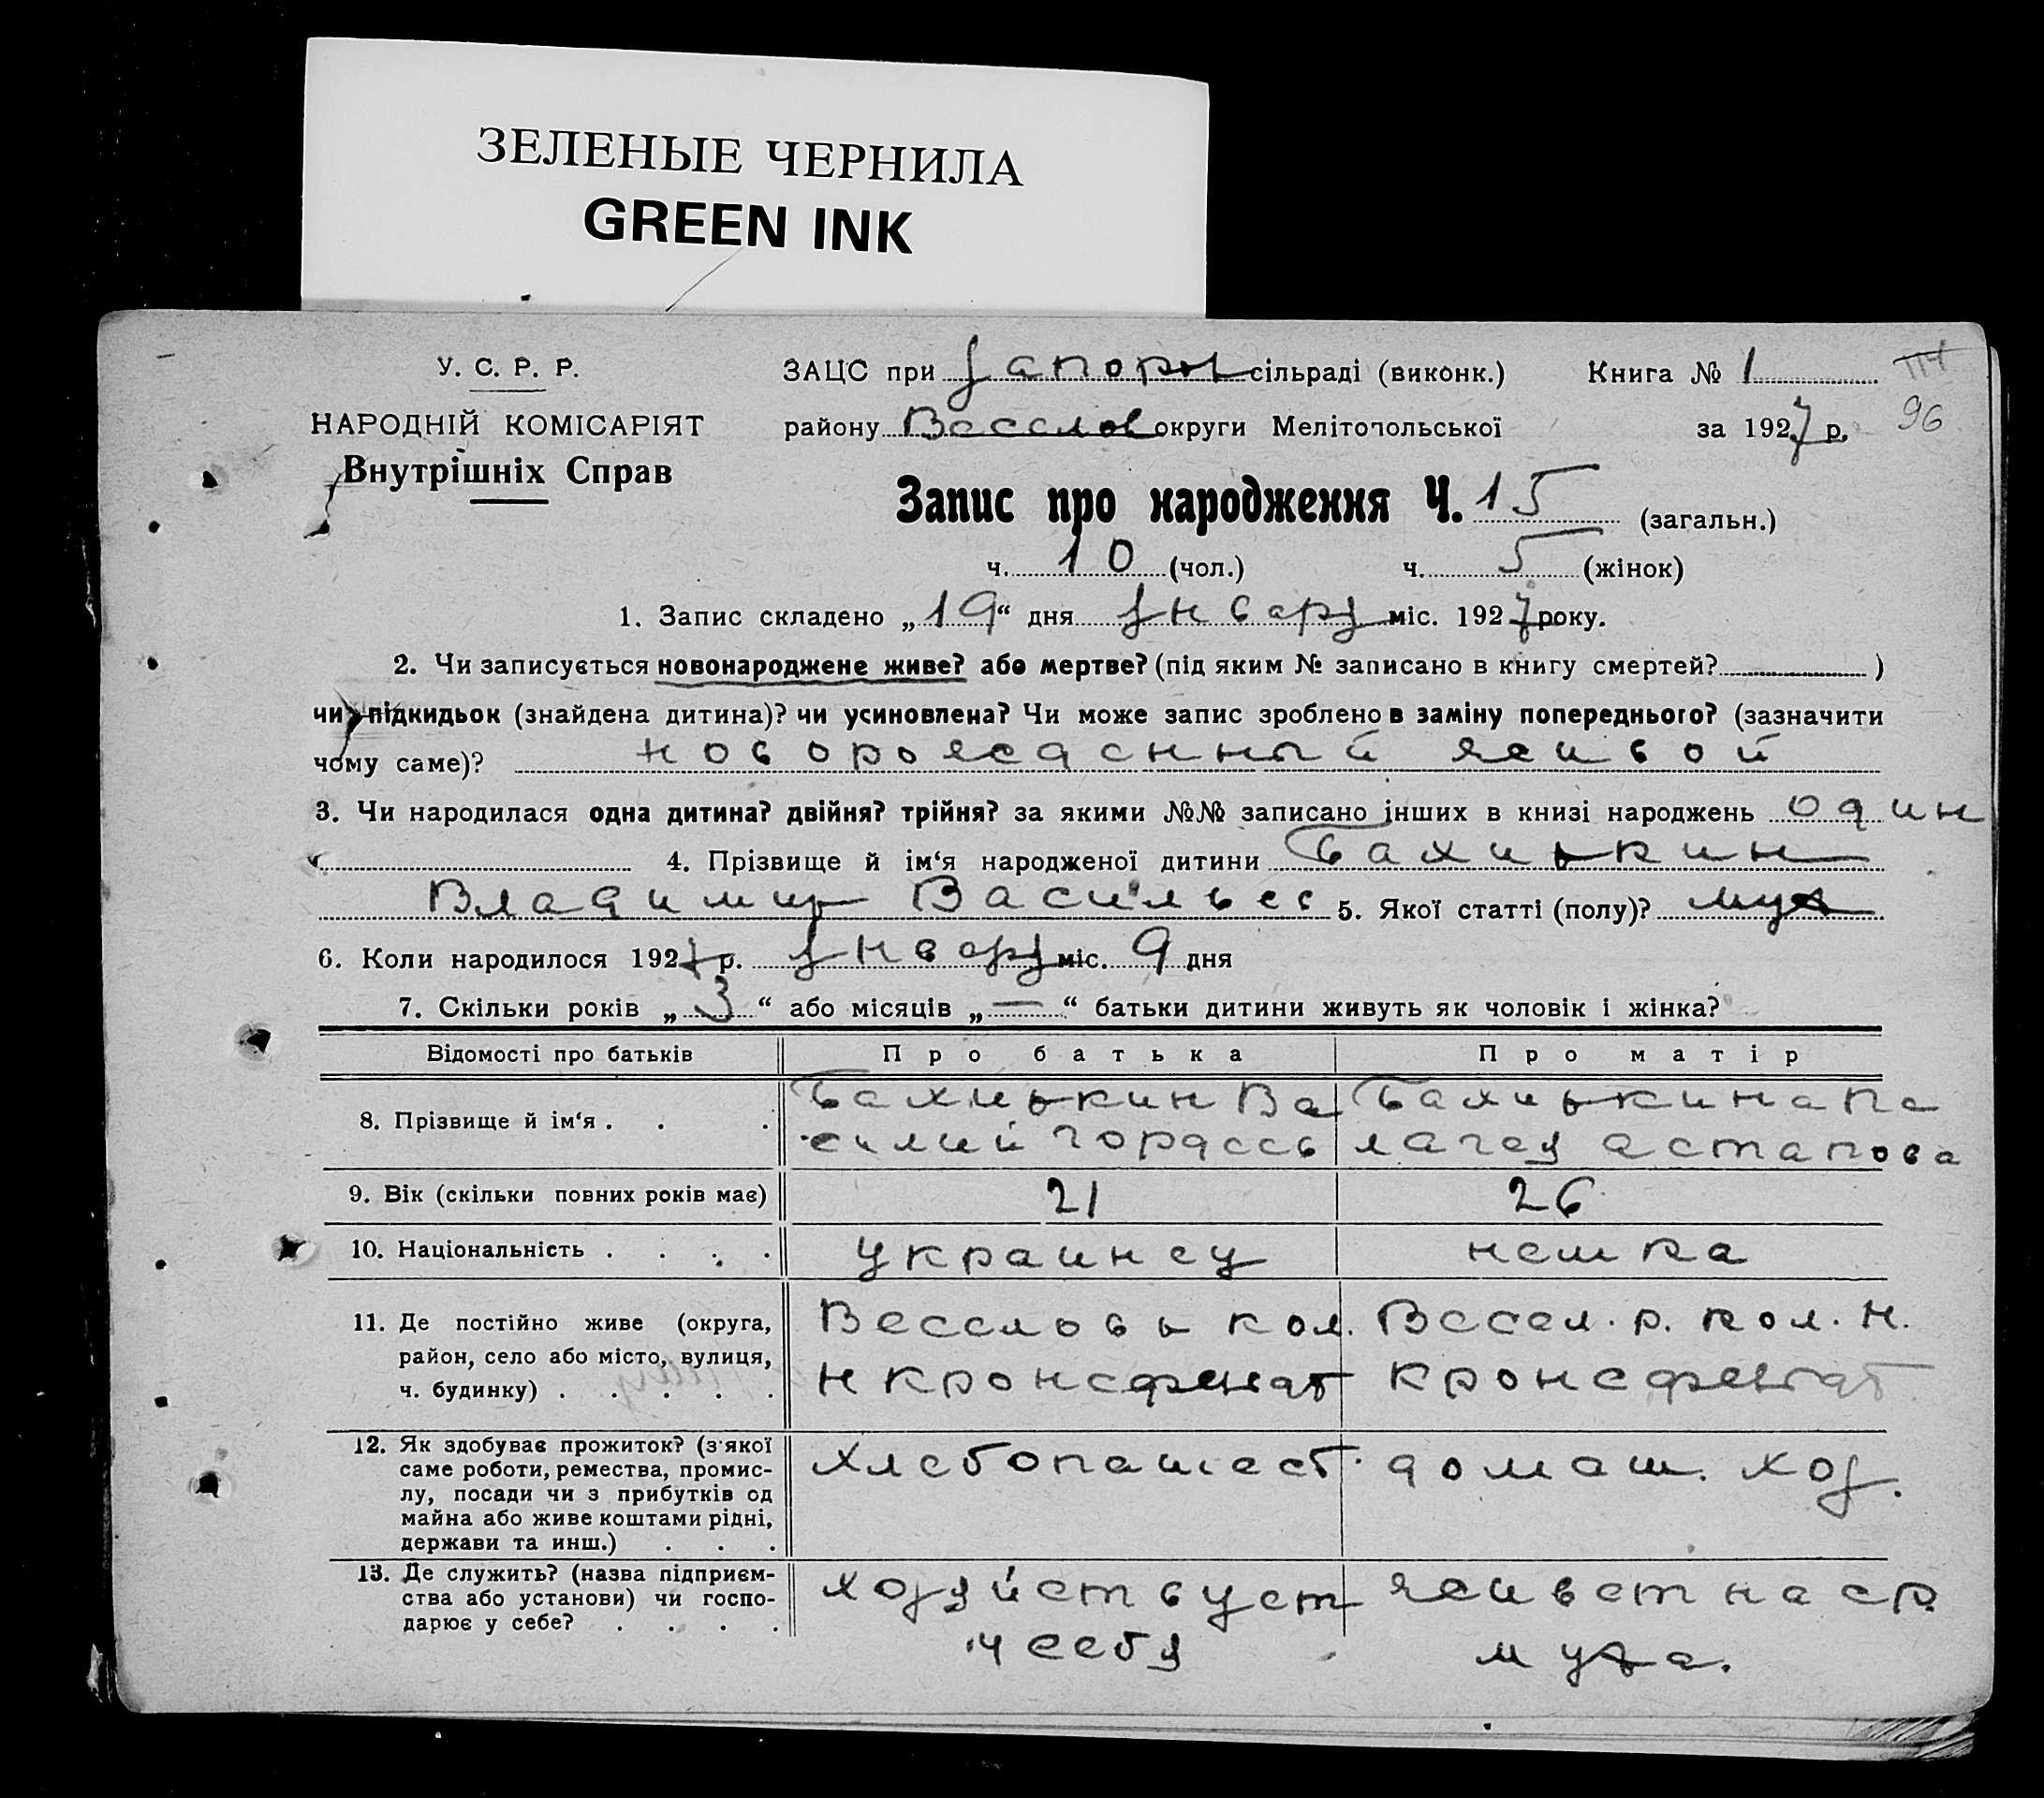 ЗЕЛЕНЫЕ ЧЕРНИЛА
GREEN INK
У. С. Р. Р.
НАРОДНІЙ КОМІСАРІЯТ
Внутрішніх Справ
ЗАЦС при Запоры сільраді (виконк.) Книга № 1 114
району Веселов округи Мелітопольської за 1927 р. 96
Запис про народження Ч. 15 (загальн.)
ч. 10 (чол.) ч. 5 (жінок)
1. Запис складено „19“ дня января міс. 1927 року.
2. Чи записується новонароджене живе? або мертве? (під яким № записано в книгу смертей? )
чи підкидьок (знайдена дитина)? чи усиновлена? Чи може запис зроблено в заміну попереднього? (зазначити
чому саме)? новорожденный живой
3. Чи народилася одна дитина? двійня? трійня? за якими №№ записано інших в книзі народжень один
4. Прізвище й ім‘я народженої дитини Бахинькин
Владимир Васильев 5. Якої статті (полу)? муж
6. Коли народилося 1927 р. января міс. 9 дня
7. Скільки років „3“ або місяців „—“ батьки дитини живуть як чоловік і жінка?
Відомості про батьків Про батька Про матір
8. Прізвище й ім‘я . . . Бахинькин Ва Бахинькина Пе
силий Гордеев лагея Астапова
9. Вік (скільки повних років має) 21 26
10. Національність . . . . украинец немка
11. Де постійно живе (округа, Веселовь кол. Весел. р. кол. Н.
район, село або місто, вулиця, Н Кронсфельдт Кронсфельдт
ч. будинку) . . . . .
12. Як здобуває прожиток? (з якої хлебопашест. домаш. хоз.
саме роботи, ремества, промис-
лу, посади чи з прибутків од
майна або живе коштами рідні,
держави та инш.) . . .
13. Де служить? (назва підприєм- хозяйствует живет на ср.
ства або установи) чи госпо- у себя мужа.
дарює у себе? . . . .